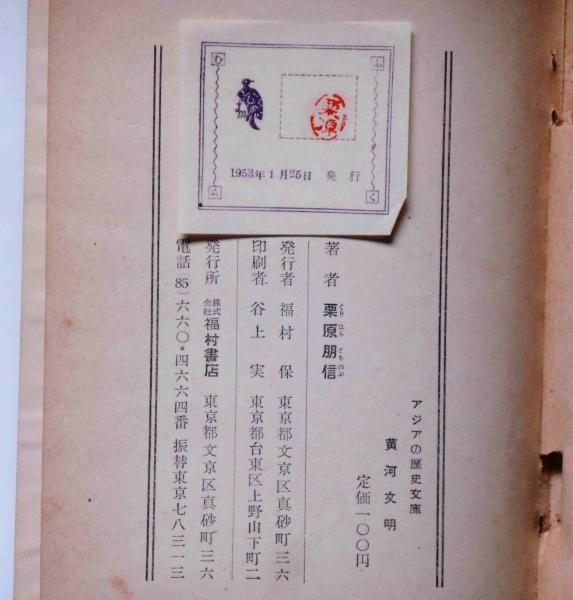 アジアの歴史文庫
黄河文明
定価一〇〇円
著者 栗原朋信
くり はら とものぶ
発行者 福村 保 東京都文京区真砂町三六
印刷者 谷上 実 東京都台東区上野山下町二
発行所 株式会社 福村書店 東京都文京区真砂町三六
電話(85)六六〇・四六六四番 振替東京七八三一三
む
ふ
ら
く
栗原
1953年1月25日 発行